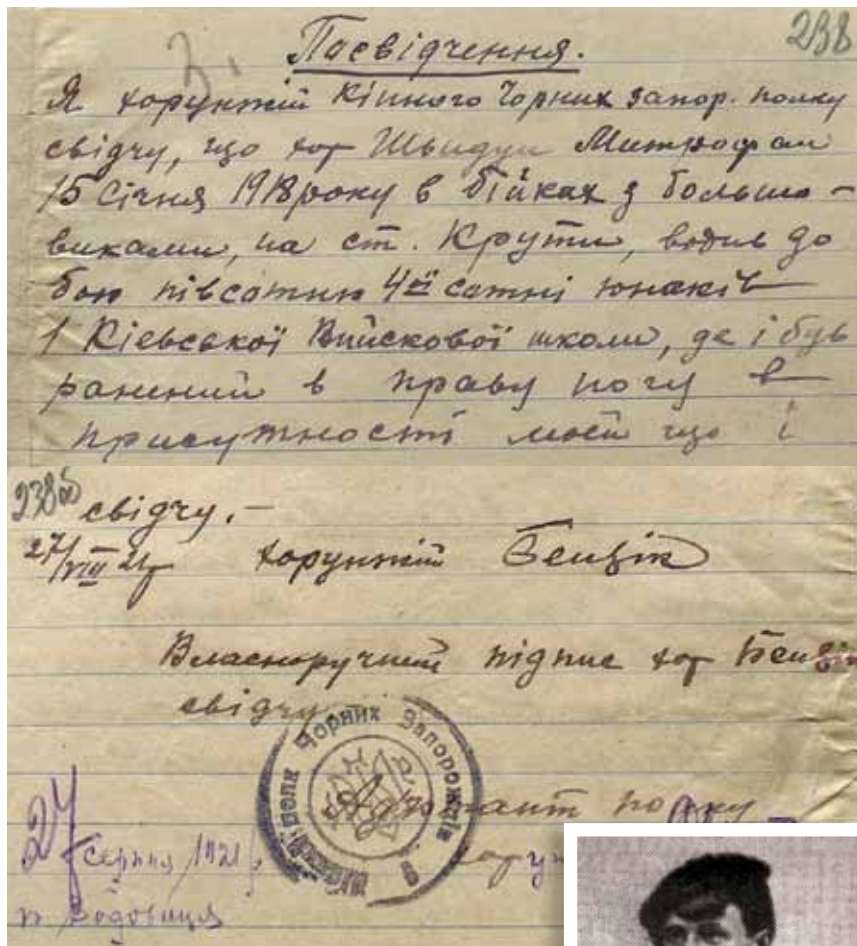 3.
238
Посвідчення.
Я хорунжій Кінного Чорних запор. полку
свідчу, що хор Швидун Митрофан
15 Січня 1918 року в бійках з больше-
виками, на ст. Крути, водив до
бою півсотню 4ої сотні юнаків
1 Кіевської Військової школи, де і був
ранений в праву ногу в
присутности моєй що і
238об
свідчу.-
27/VIII 21р хорунжій Бензік
Власноручний підпис хор Бензік
свідчу
Кінний полк Чорних Запорожців
Адютант полку
хорун
27 серпня 1921р.